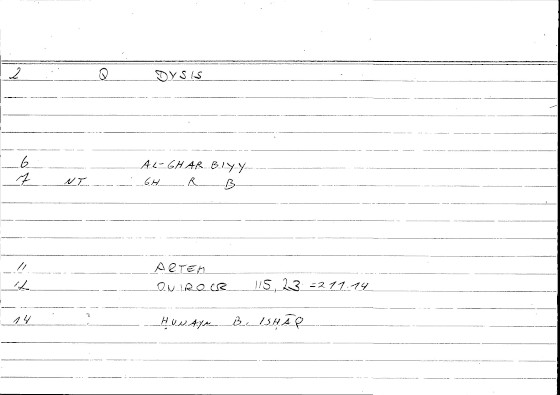 2 Q DYSIS
6 AL-GHARBIYY
7 NT GH R B
11 ARTEM
12 ONIROCR 115,23 =211.14
14 ḤUNAYN B. ISḤĀQ